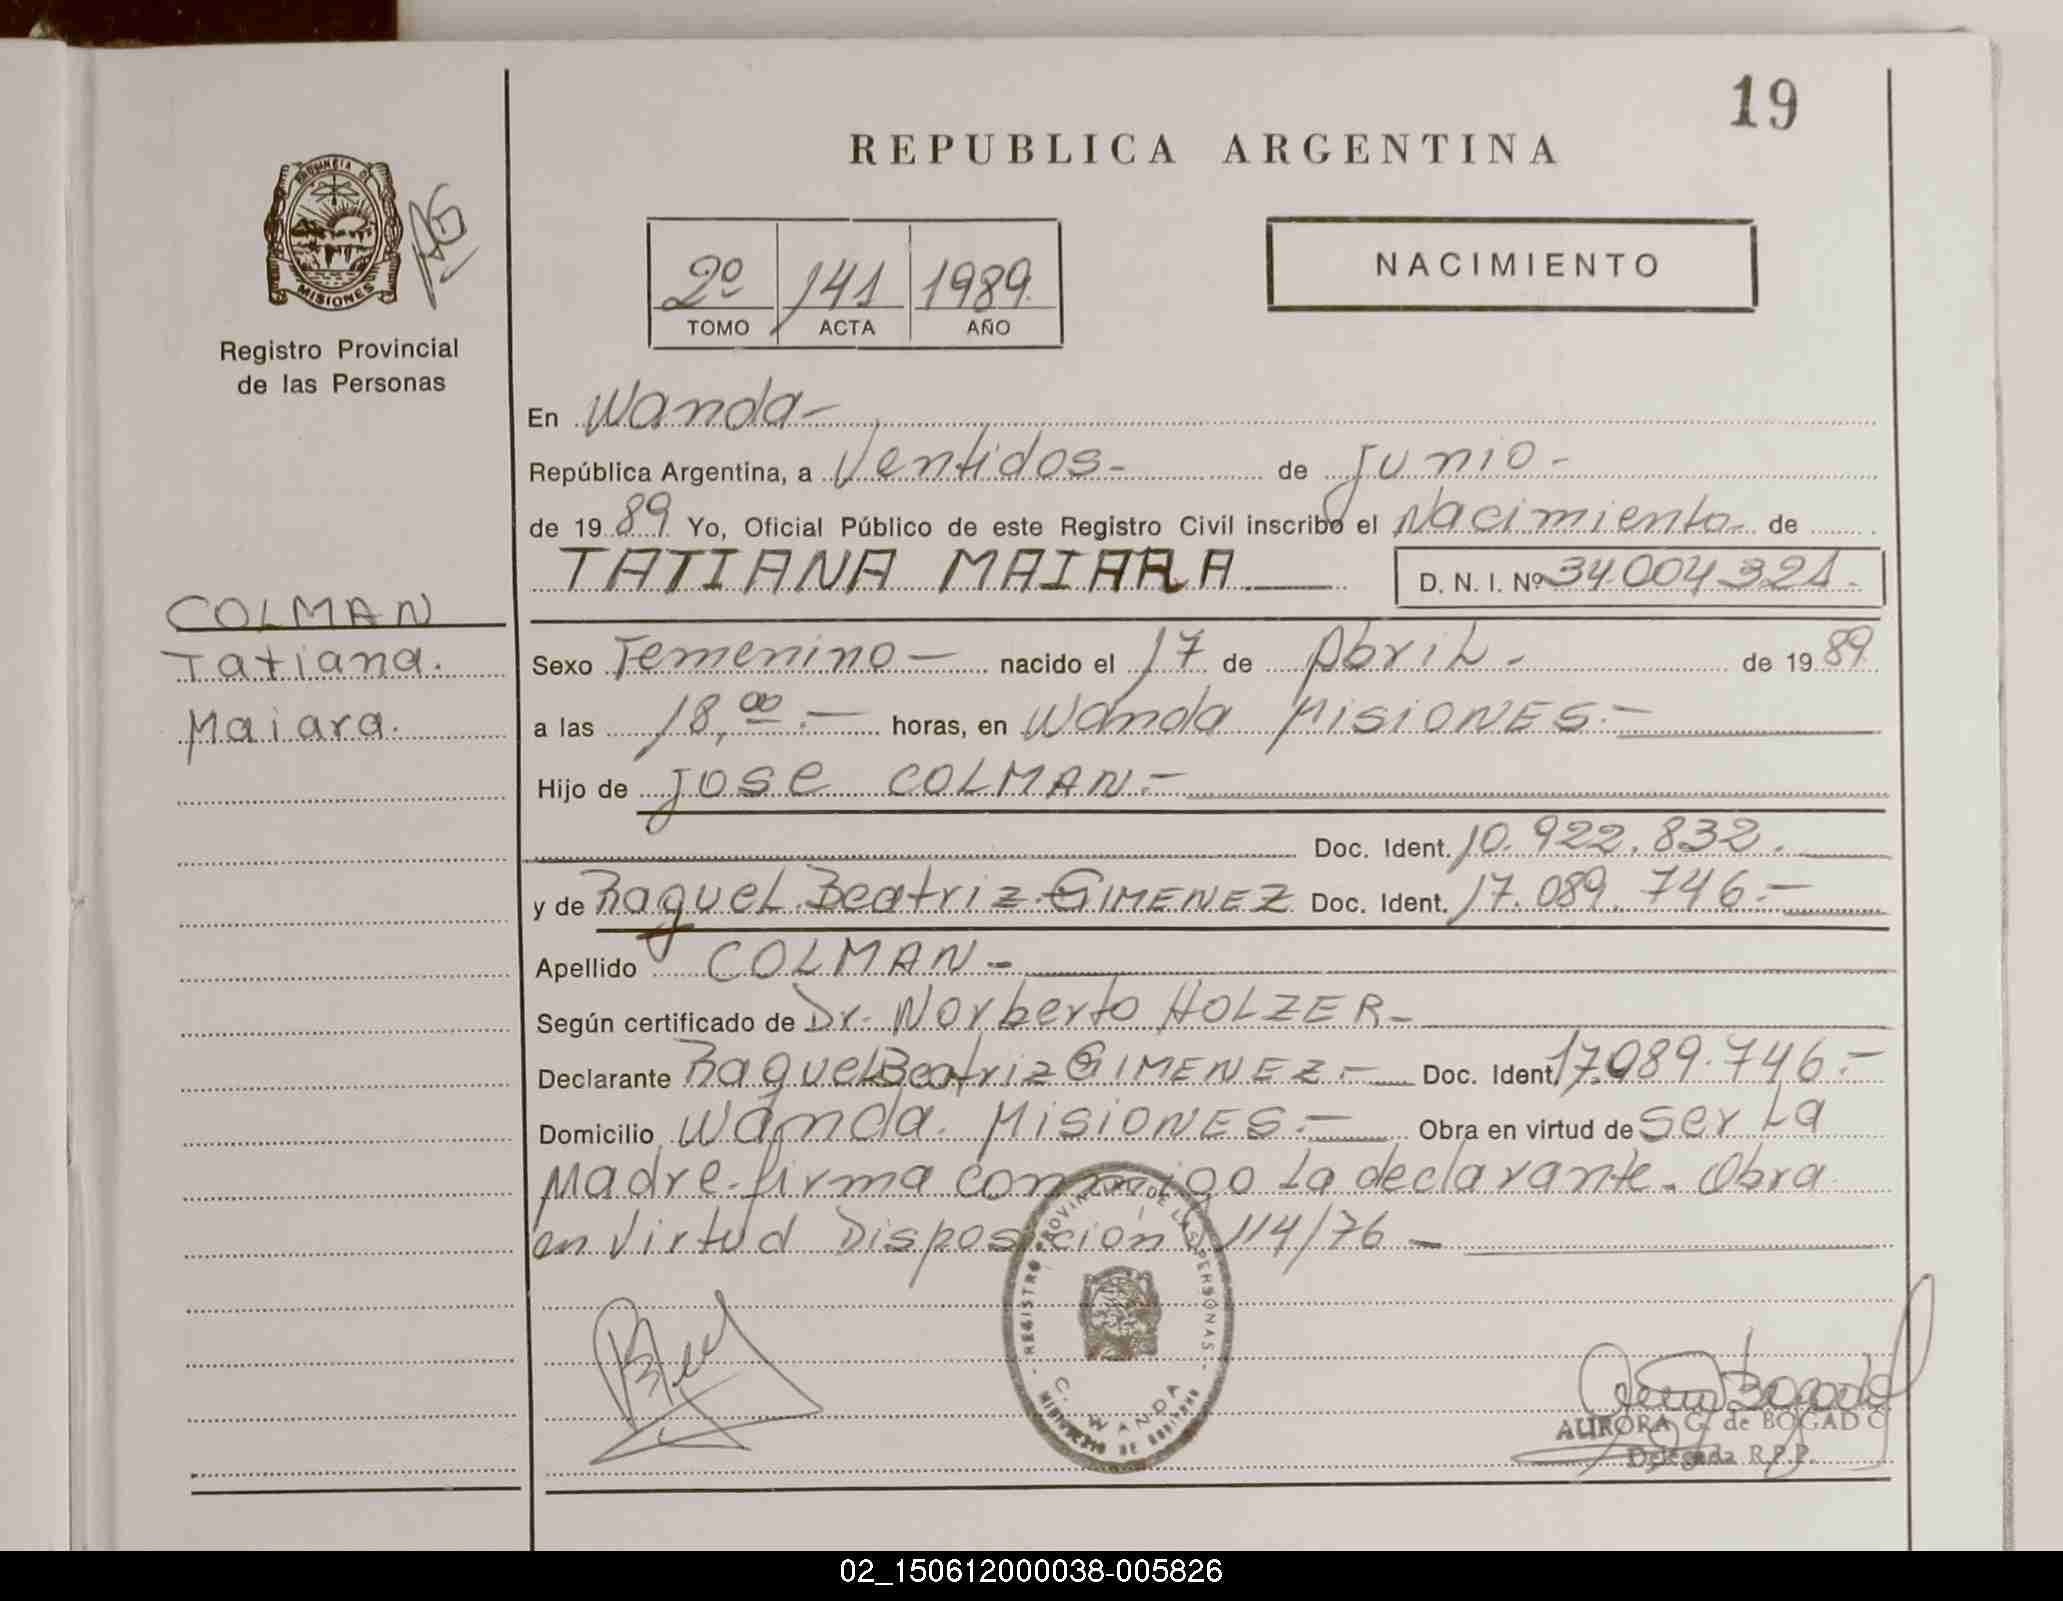 19
REPUBLICA ARGENTINA
PROVINCIA DE
MISIONES
Registro Provincial
de las Personas
2º 141 1989
TOMO ACTA AÑO
NACIMIENTO
En Wanda-
República Argentina, a Ventidos- de Junio-
de 1989 Yo, Oficial Público de este Registro Civil inscribo el Nacimiento- de
TATIANA MAIARA D. N. I. Nº 34.004.321.-
COLMAN
Tatiana.
Maiara.
Sexo Femenino- nacido el 17 de Abril- de 1989
a las 18,00.- horas, en Wanda MISIONES.-
Hijo de Jose COLMAN.-
Doc. Ident. 10.922.832.
y de Raquel Beatriz GIMENEZ Doc. Ident. 17.089.746.-
Apellido COLMAN-
Según certificado de Dr. Norberto HOLZER-
Declarante Raquel Beatriz GIMENEZ.- Doc. Ident. 17.089.746.-
Domicilio Wanda. MISIONES.- Obra en virtud de ser La
Madre-firma conmigo La declarante. Obra
en Virtud Disposición 114/76-
REGISTRO PROVINCIAL DE LAS PERSONAS
C. WANDA
MINISTERIO DE GOBIERNO
AURORA G. de BOGADO
Delegada R.P.P.
02_150612000038-005826